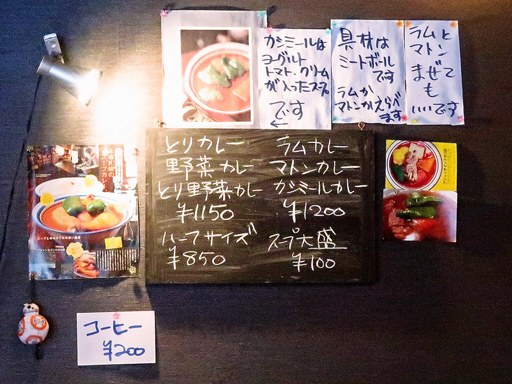 カシミールは
ヨーグルト
トマト、クリーム
が入ったスープ
です
具材は
ミートボール
です
ラムか
マトンかえらべ
ます
ラムと
マトン
まぜて
も
いいです
とりカレー
野菜カレー
とり野菜カレー
¥1150
ハーフサイズ
¥850
ラムカレー
マトンカレー
カシミールカレー
¥1200
スープ大盛
¥100
コーヒー
¥200